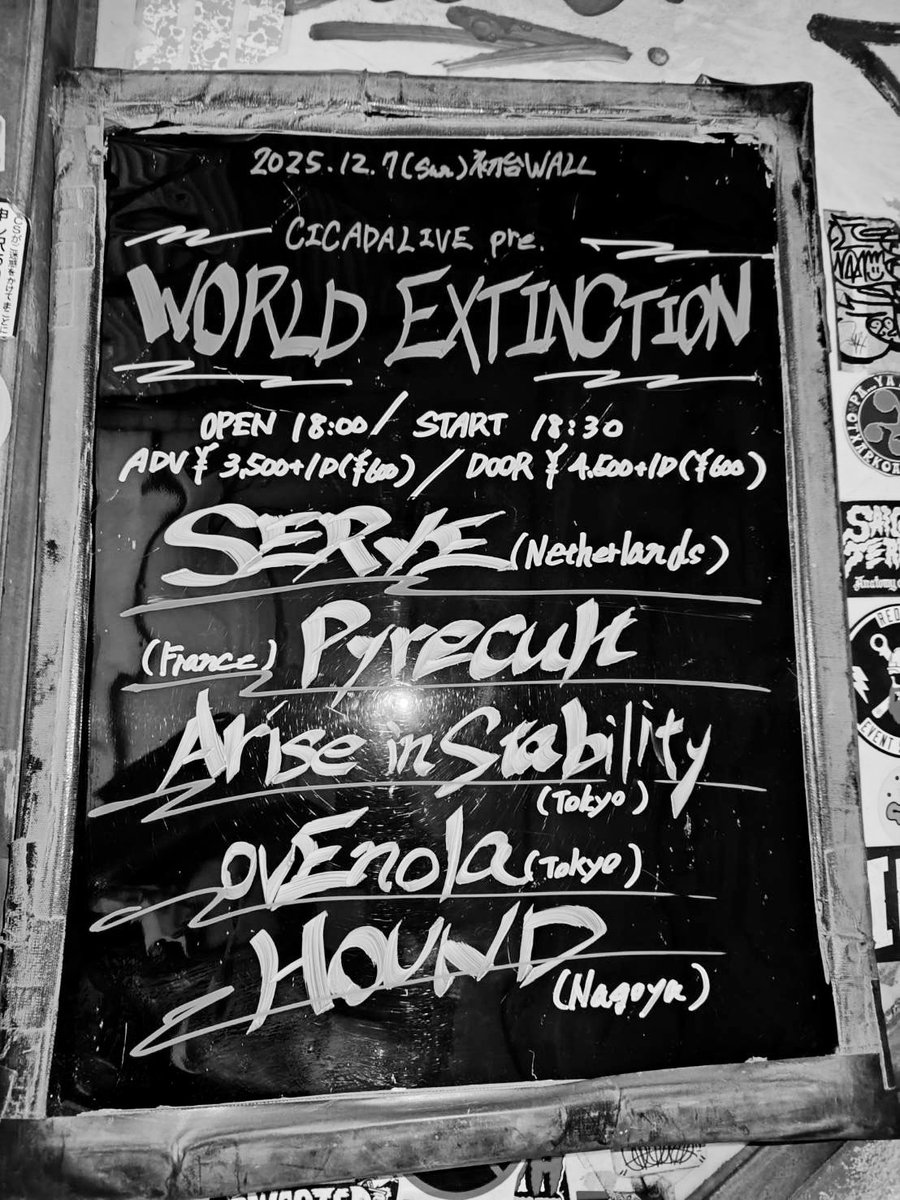 2025.12.7(Sun)初台WALL
CICADALIVE pre.
WORLD EXTINCTION
OPEN 18:00/ START 18:30
ADV¥3,500+1D(¥600)/DOOR¥4,500+1D(¥600)
SERVE(Netherlands)
(France) Pyrecult
Arise in Stability
(Tokyo)
ovEnola(Tokyo)
HOUND
(Nagoya)
EVENT